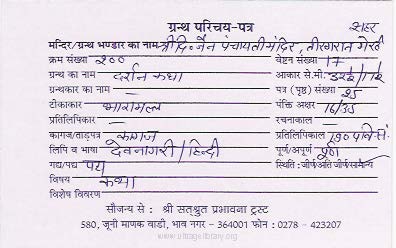 ग्रन्थ परिचय-पत्र
सहर
मन्दिर/ग्रन्थ भण्डार का नाम श्री दि० जैन पंचायती मंदिर,
क्रम संख्या २०० वेष्टन संख्या 17
ग्रन्थ का नाम दर्शन कथा आकार से.मी.
ग्रन्थकार का नाम — पत्र (पृष्ठ) संख्या २५
टीकाकार भारामल्ल पंक्ति अक्षर 16/35
प्रतिलिपिकार — रचनाकाल —
कागज/ताड़पत्र कागज प्रतिलिपिकाल
लिपि व भाषा देवनागरी / हिन्दी पूर्ण/अपूर्ण पूर्ण
गद्य/पद्य पद्य स्थिति : जीर्ण/अति जीर्ण/सामान्य
विषय कथा
विशेष विवरण
सौजन्य से : श्री सत्श्रुत प्रभावना ट्रस्ट
580, जूनी माणक वाडी, भाव नगर – 364001 फोन : 0278 – 423207